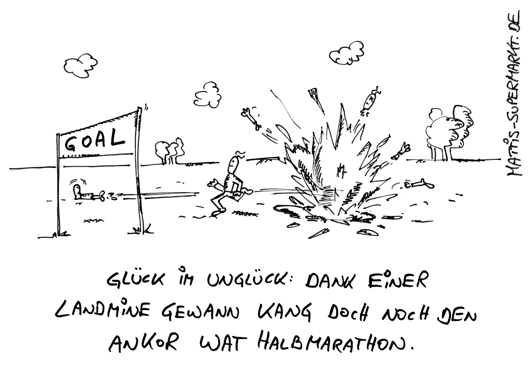 MATTIS-SUPERMARKT.DE
GOAL
GLÜCK IM UNGLÜCK: DANK EINER
LANDMINE GEWANN KANG DOCH NOCH DEN
ANKOR WAT HALBMARATHON.